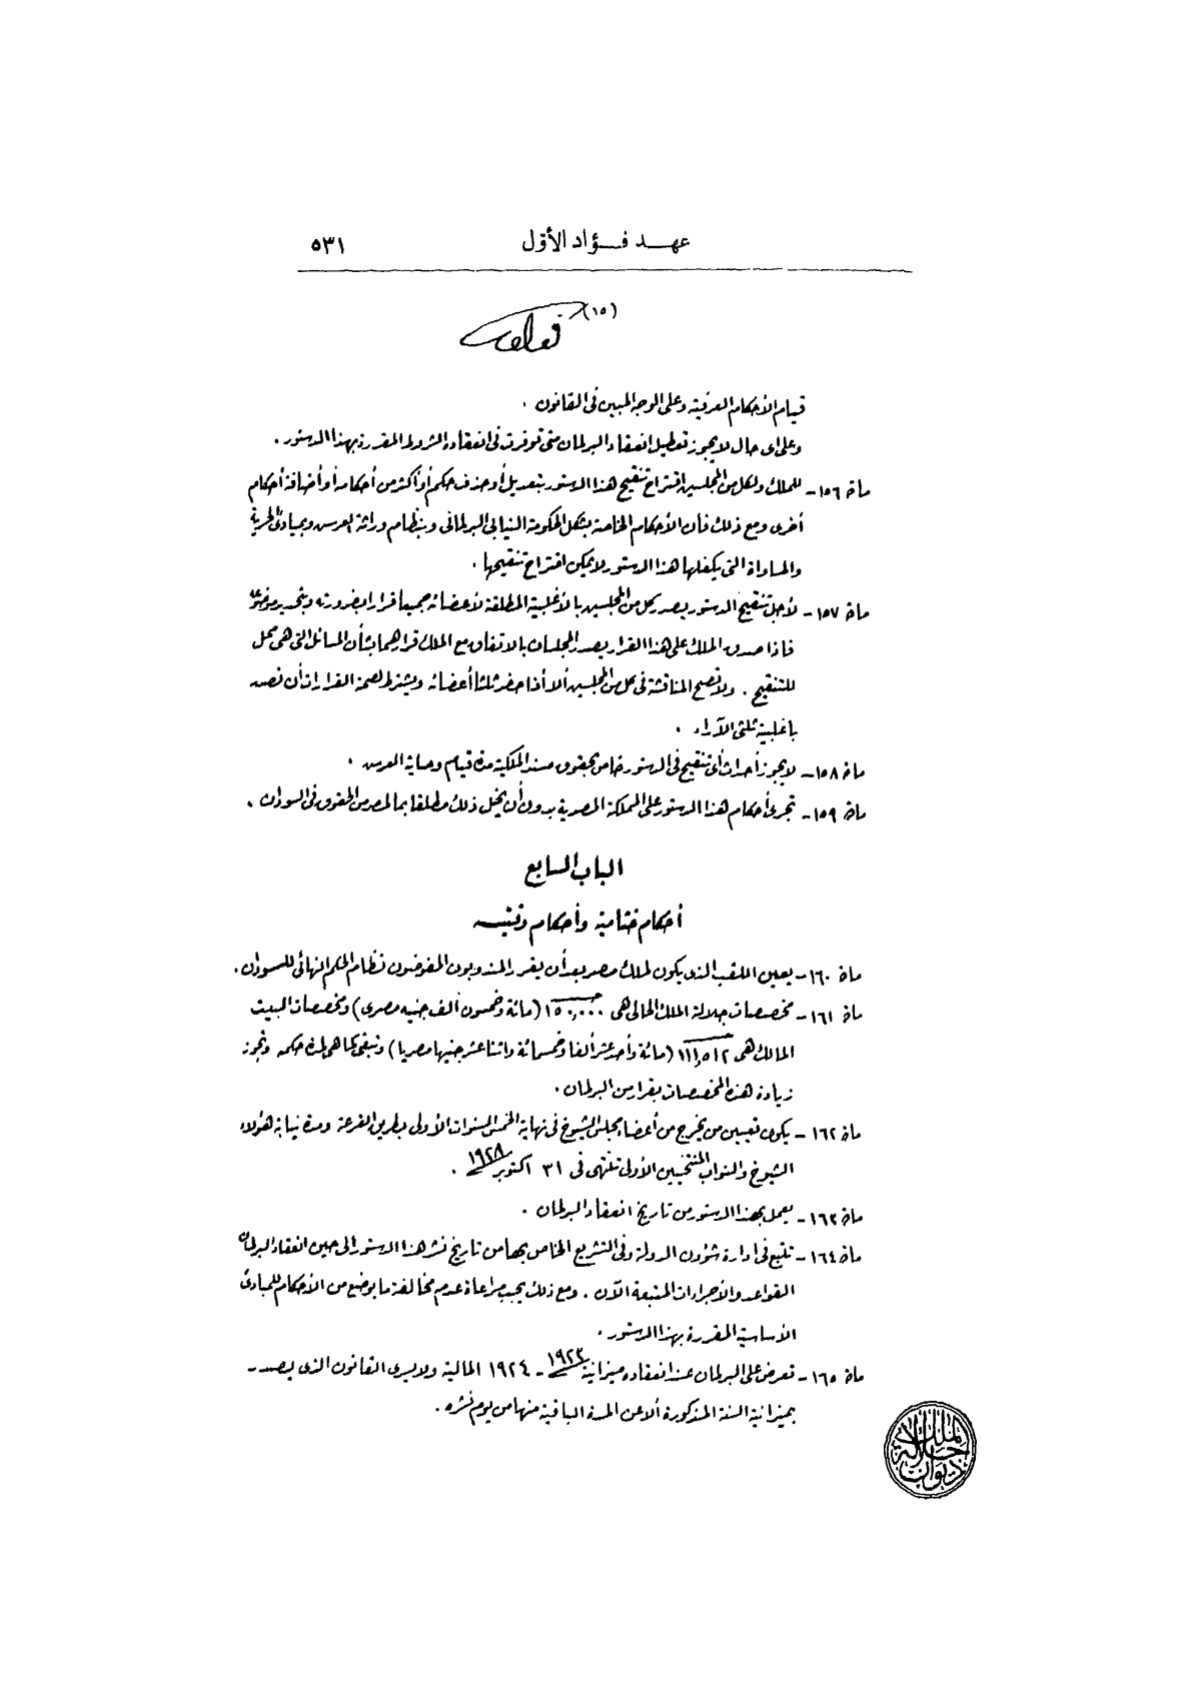 عهد فؤاد الأول ٥٣١
(١٥)
قيام الأحكام العرفية وعلى الوجه المبين فى القانون .
وعلى اى حال لا يجوز تعطيل انعقاد البرلمان متى توفرت فى انعقاده الشروط المقررة بهذا الدستور .
مادة ١٥٦ - للملك ولكل من المجلسين اقتراح تنقيح هذا الدستور بتعديل أو حذف حكم أو أكثر من أحكامه أو أضافة أحكام
أخرى ومع ذلك فأن الأحكام الخاصة بشكل الحكومة النيابى البرلمانى وبنظام وراثة العرس وبمبادئ الحرية
والمساواة التى يكفلها هذا الدستور لا يمكن اقتراح تنقيحها .
مادة ١٥٧ - لأجل تنقيح الدستور يصدر كل من المجلسين بالأغلبية المطلقة لأعضائه جميعا قرارا بضرورته وبتحديد موضوعه
فاذا صدق الملك على هذا القرار يصدر المجلسان بالاتفاق مع الملك قرارهما بشأن المسائل التى هى محل
للتنقيح . ولا تصح المناقشة فى كل من المجلسين ألا أذا حضر ثلثا أعضائه ويشترط لصحة القرارات أن تصدر
باغلبية ثلثى الآراء .
مادة ١٥٨ - لا يجوز أحداث أى تنقيح فى الدستور خاص بحقوق مسند الملكية مدة قيام وصاية العرس .
مادة ١٥٩ - تجرى أحكام هذا الدستور على المملكة المصرية بدون أن يخل ذلك مطلقا بما لمصر من الحقوق فى السودان .
الباب السابع
أحكام ختامية وأحكام وقتيه
مادة ١٦٠ - يعين اللقب الذى يكون لملك مصر بعد أن يقرر المندوبون المفوضون نظام الحكم النهائى للسودان .
مادة ١٦١ - مخصصات جلالة الملك الحالى هى ١٥٠,٠٠٠ (مائة وخمسون ألف جنيه مصرى) ومخصصات البيت
المالك هى ١١١,٥١٢ (مائة وأحد عشر ألفا وخمسمائة واثنا عشر جنيها مصريا) وتبقى كما هى لمدة حكمه وتجوز
زيادة هذه المخصصات بقرار من البرلمان .
مادة ١٦٢ - يكون تعيين من يخرج من أعضاء مجلس الشيوخ فى نهاية الخمس السنوات الأولى بطريق القرعة ومدة نيابة هؤلاء
الشيوخ والنواب المنتخبين الأولى تنتهى فى ٣١ اكتوبر ١٩٢٨ .
مادة ١٦٣ - يعمل بهذا الدستور من تاريخ انعقاد البرلمان .
مادة ١٦٤ - تتبع فى ادارة شؤون الدولة وفى التشريع الخاص بها من تاريخ نشر هذا الدستور الى حين انعقاد البرلمان
القواعد والأجراءات المتبعة الآن . ومع ذلك يجب مراعاة عدم مخالفة ما يوضع من الأحكام للمبادئ
الأساسية المقررة بهذا الدستور .
مادة ١٦٥ - تعرض على البرلمان عند انعقاده ميزانية ١٩٢٣ - ١٩٢٤ المالية ولا يسرى القانون الذى يصدر
بميزانية السنة المذكورة ألا عن المدة الباقية منها من يوم نشره .
ديوان جلالة الملك